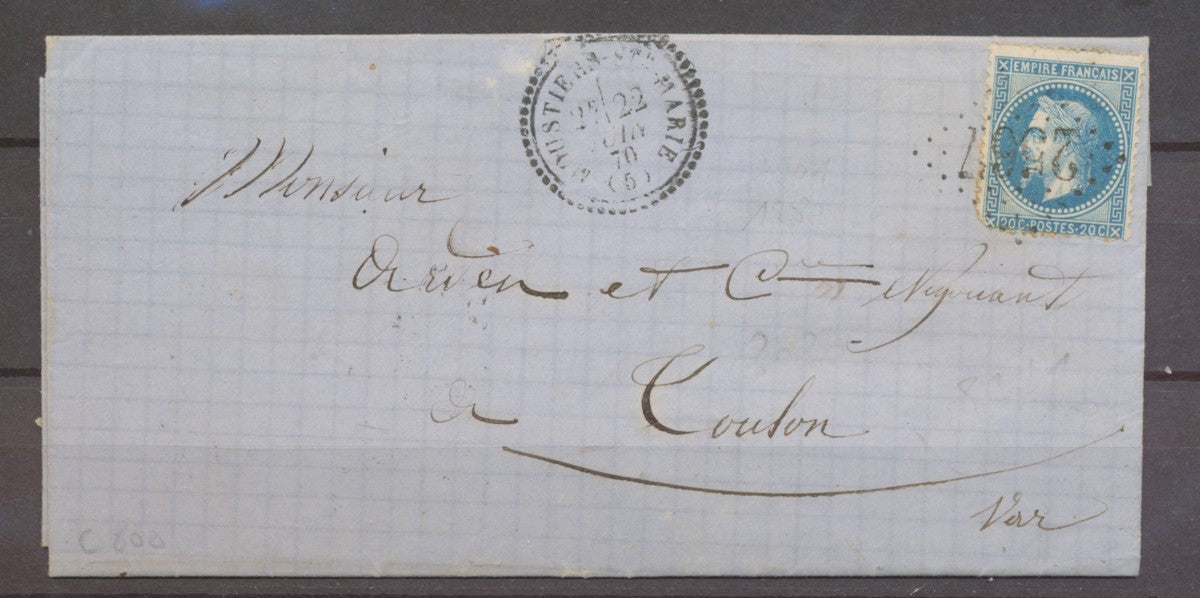 MOUSTIERS-STE-MARIE
22
JUIN
70
(5)
EMPIRE FRANÇAIS
20 C-POSTES-20 C
Monsieur
et Cie Négociant
a Toulon
Var
C 800